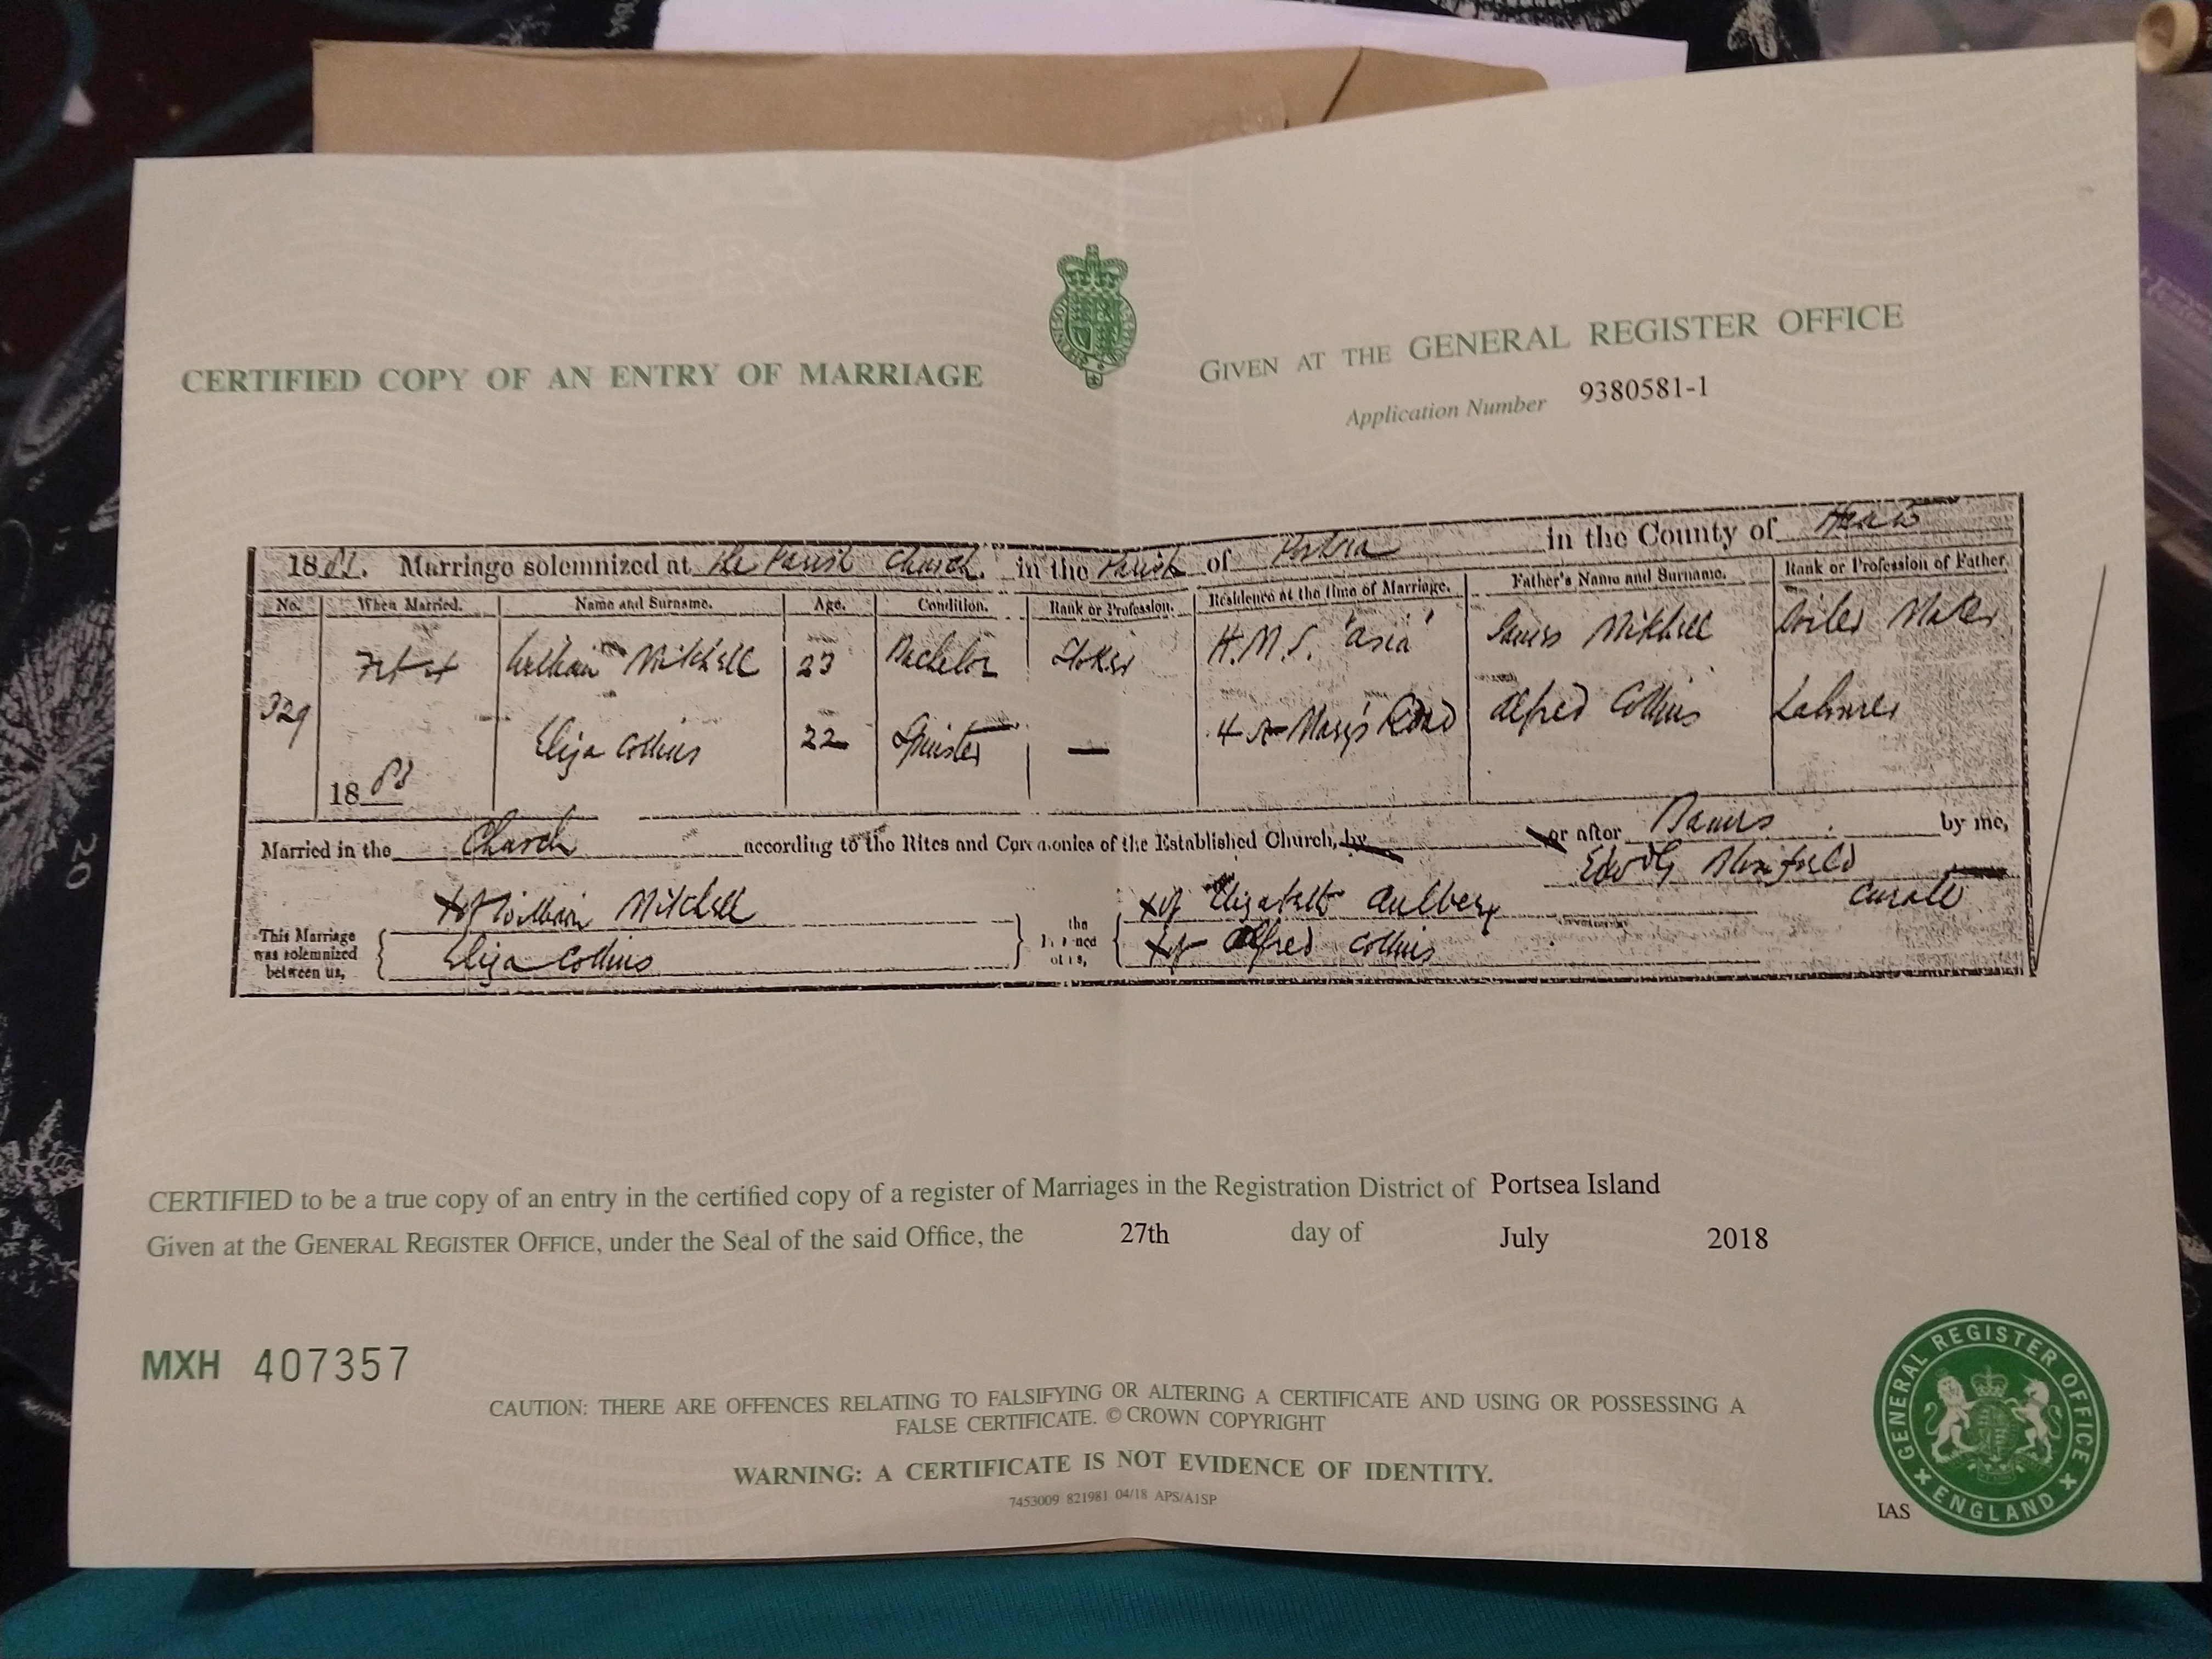 CERTIFIED COPY OF AN ENTRY OF MARRIAGE
GIVEN AT THE GENERAL REGISTER OFFICE
Application Number 9380581-1
18 Marriage solemnized at the Parish Church. in the Parish of Portsea in the County of Hants
No. When Married. Name and Surname. Age. Condition. Rank or Profession. Residence at the time of Marriage. Father's Name and Surname. Rank or Profession of Father.
William Mitchell 23 Bachelor Stoker H.M.S. "Asia" James Mitchell Boiler Maker
329
Eliza Collins 22 Spinster — 4 St Mary's Road Alfred Collins Labourer
18
Married in the Church according to the Rites and Ceremonies of the Established Church, by or after Banns by me,
Edw G
Curate
This Marriage was solemnized between us,
X of William Mitchell
Eliza Collins
the
X of Elizabeth Aulbery
X of Alfred Collins
CERTIFIED to be a true copy of an entry in the certified copy of a register of Marriages in the Registration District of Portsea Island
Given at the GENERAL REGISTER OFFICE, under the Seal of the said Office, the 27th day of July 2018
MXH 407357
CAUTION: THERE ARE OFFENCES RELATING TO FALSIFYING OR ALTERING A CERTIFICATE AND USING OR POSSESSING A
FALSE CERTIFICATE. © CROWN COPYRIGHT
WARNING: A CERTIFICATE IS NOT EVIDENCE OF IDENTITY.
7453009 821981 04/18 APS/A1SP
IAS
GENERAL REGISTER OFFICE
ENGLAND
20